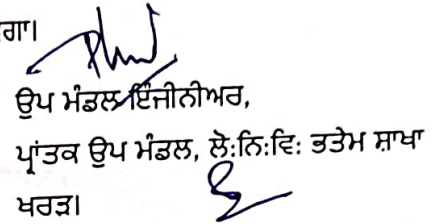 ਗਾ।
ਉਪ ਮੰਡਲ ਇੰਜੀਨੀਅਰ,
ਪ੍ਰਾਂਤਕ ਉਪ ਮੰਡਲ, ਲੋ:ਨਿ:ਵਿ: ਭਤੇਮ ਸ਼ਾਖਾ
ਖਰੜ।